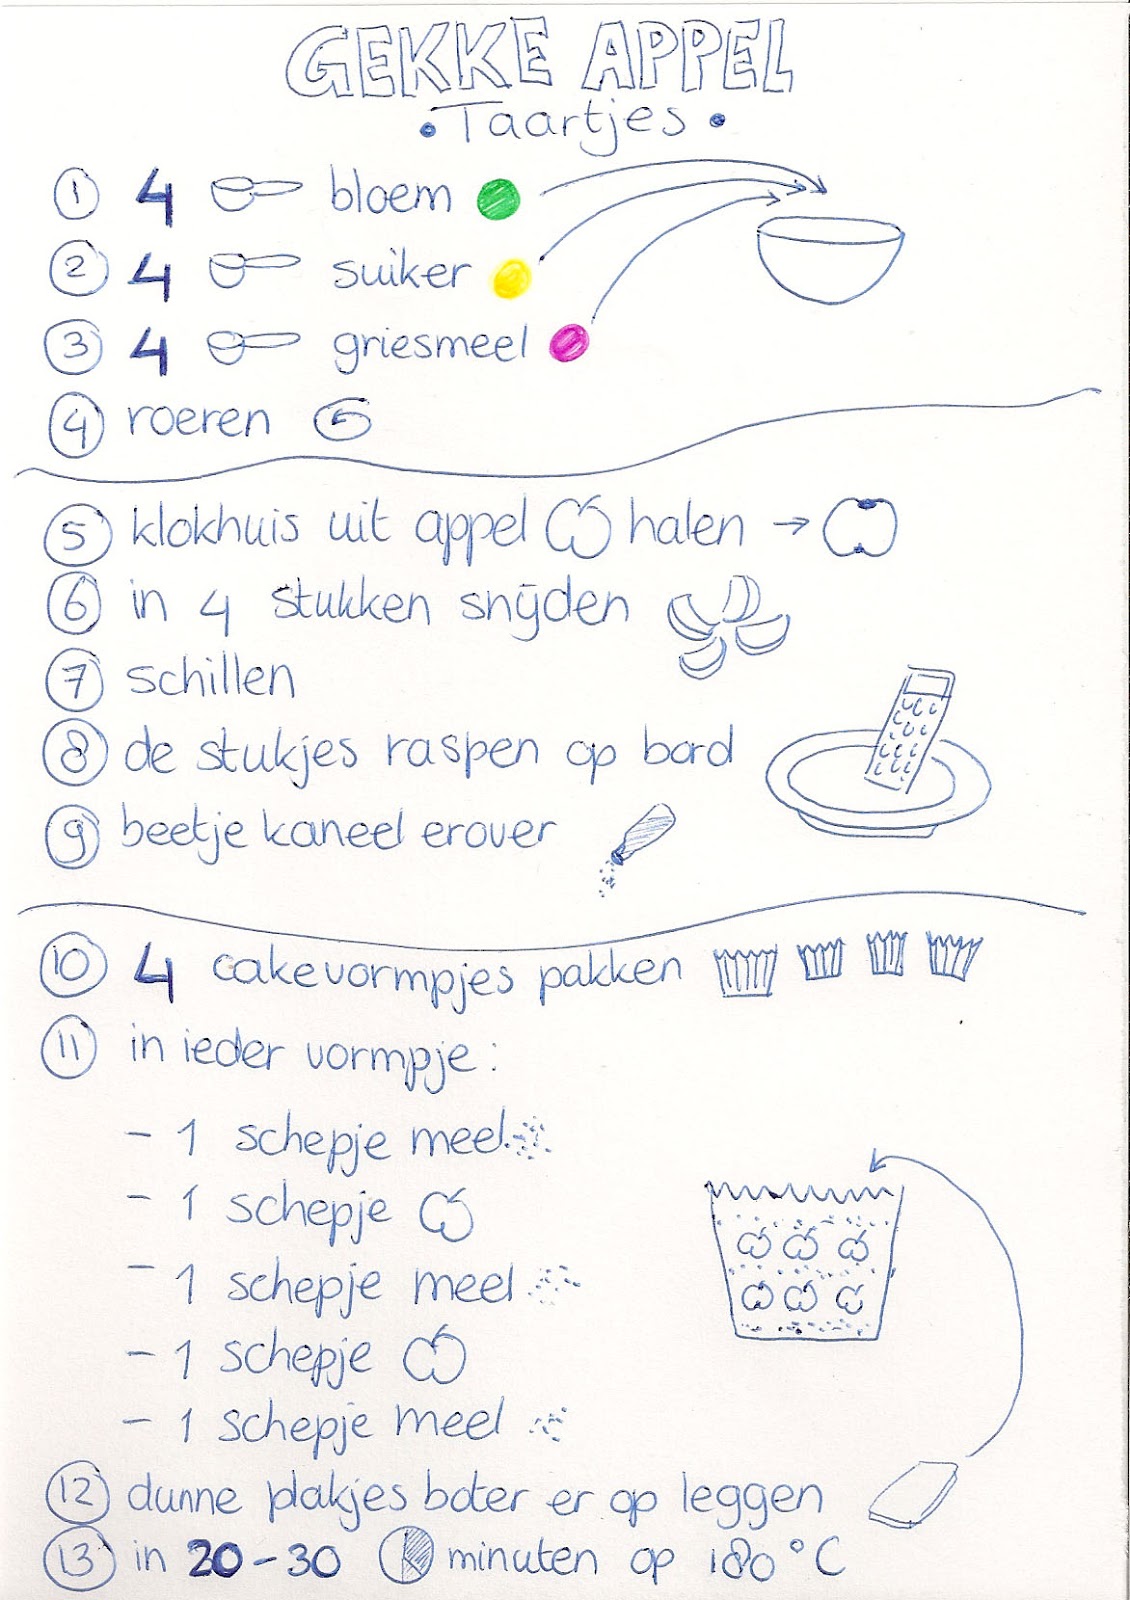 GEKKE APPEL
• Taartjes •
1 4 bloem
2 4 suiker
3 4 griesmeel
4 roeren
5 klokhuis uit appel halen →
6 in 4 stukken snijden
7 schillen
8 de stukjes raspen op bord
9 beetje kaneel erover
10 4 cakevormpjes pakken
11 in ieder vormpje:
- 1 schepje meel
- 1 schepje
- 1 schepje meel
- 1 schepje
- 1 schepje meel
12 dunne plakjes boter er op leggen
13 in 20-30 minuten op 180°C